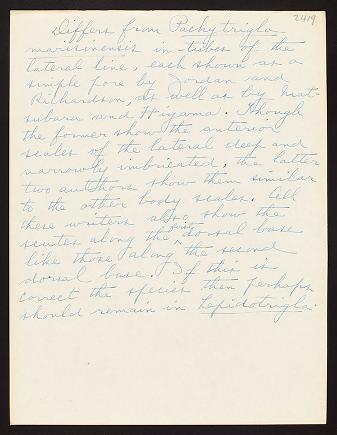 2419
Differs from Pachytrigla
marisinensis in tubes of the
lateral line, each shown as a
simple pore by Jordan and
Richardson, as well as by Mat-
subara and Hiyama. Though
the former show the anterior
scales of the lateral deep and
narrowly imbricated, the latter
two authors show them similar
to the other body scales. All
these writers also show the
scutes along the first dorsal base
like those along the second
dorsal base. If this is
correct the species then perhaps
should remain in Lepidotrigla.